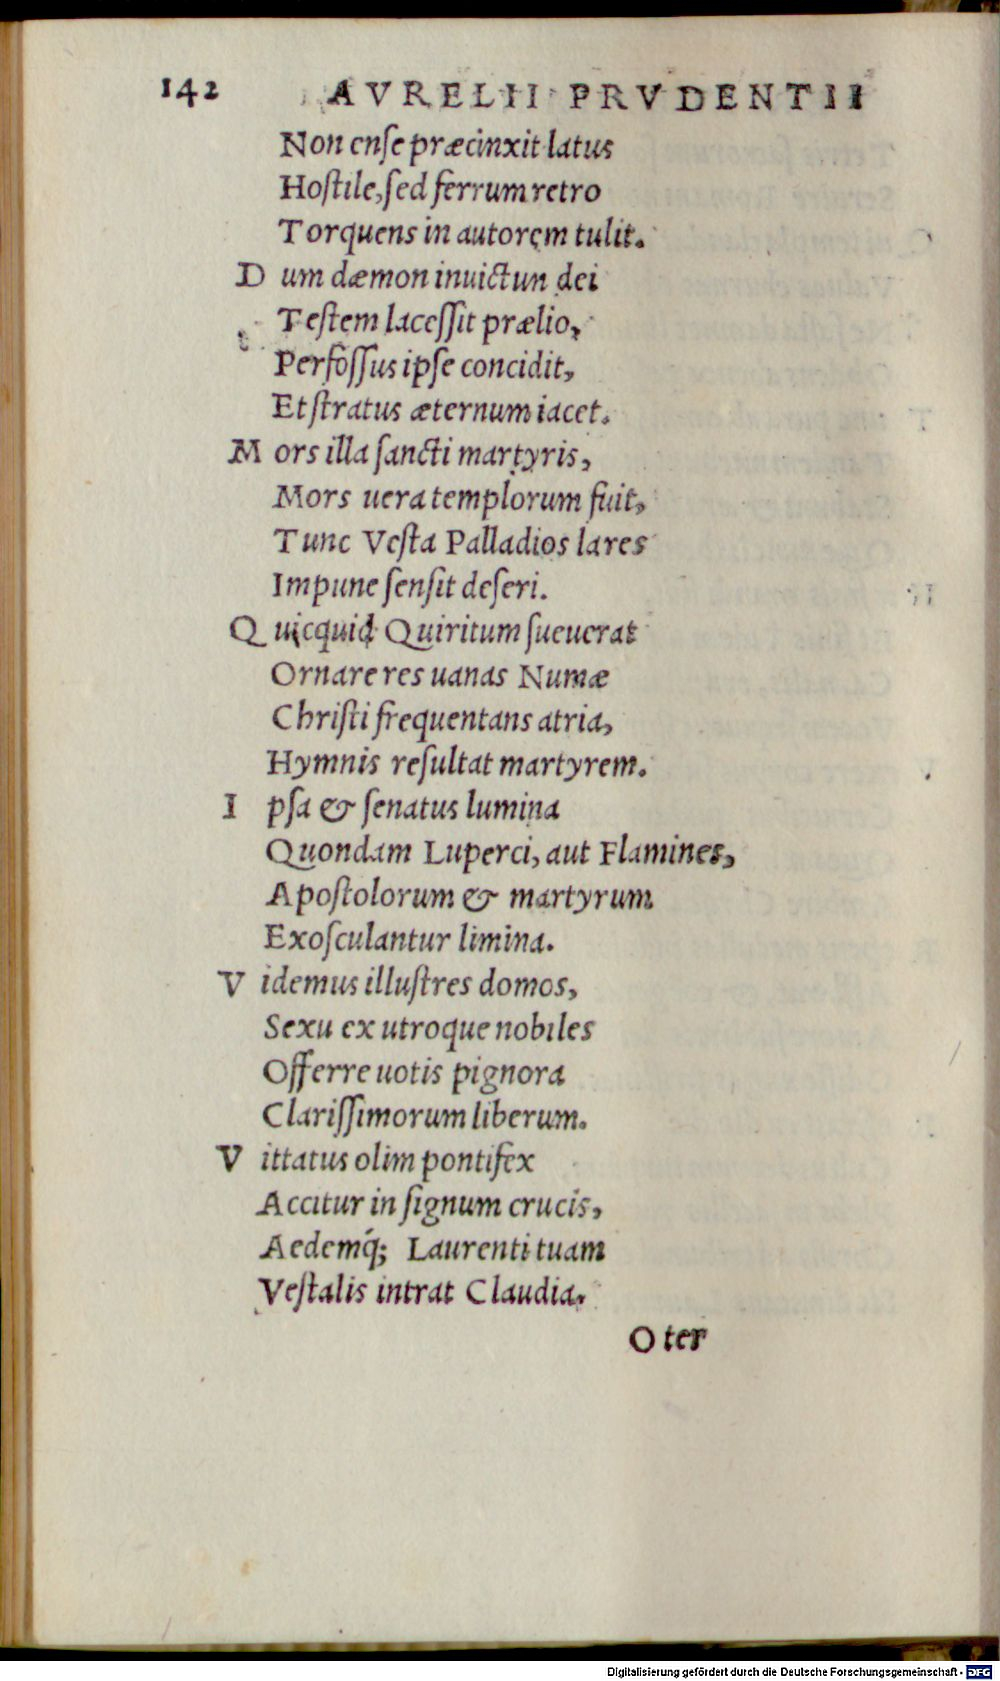 142 AVRELII PRVDENTII
Non enſe præcinxit latus
Hoſtile, ſed ferrum retro
Torquens in autorem tulit.
D um dæmon inuictun dei
Teſtem laceſſit prælio,
Perfoſſus ipſe concidit,
Et ſtratus æternum iacet.
M ors illa ſancti martyris,
Mors uera templorum fuit,
Tunc Veſta Palladios lares
Impune ſenſit deſeri.
Q uicquid Quiritum ſueuerat
Ornare res uanas Numæ
Chriſti frequentans atria,
Hymnis reſultat martyrem.
I pſa & ſenatus lumina
Quondam Luperci, aut Flamines,
Apoſtolorum & martyrum
Exoſculantur limina.
V idemus illuſtres domos,
Sexu ex utroque nobiles
Offerre uotis pignora
Clariſſimorum liberum.
V ittatus olim pontifex
Accitur in ſignum crucis,
Aedemq́; Laurenti tuam
Veſtalis intrat Claudia.
O ter
Digitalisierung gefördert durch die Deutsche Forschungsgemeinschaft - DFG